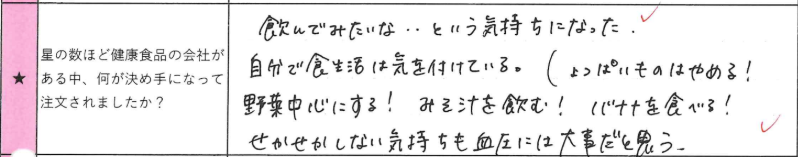 ★
星の数ほど健康食品の会社が
ある中、何が決め手になって
注文されましたか？
飲んでみたいな‥という気持ちになった.
自分で食生活は気を付けている。(しょっぱいものはやめる!
野菜中心にする! みそ汁を飲む! バナナを食べる!
せかせかしない気持ちも血圧には大事だと思う.